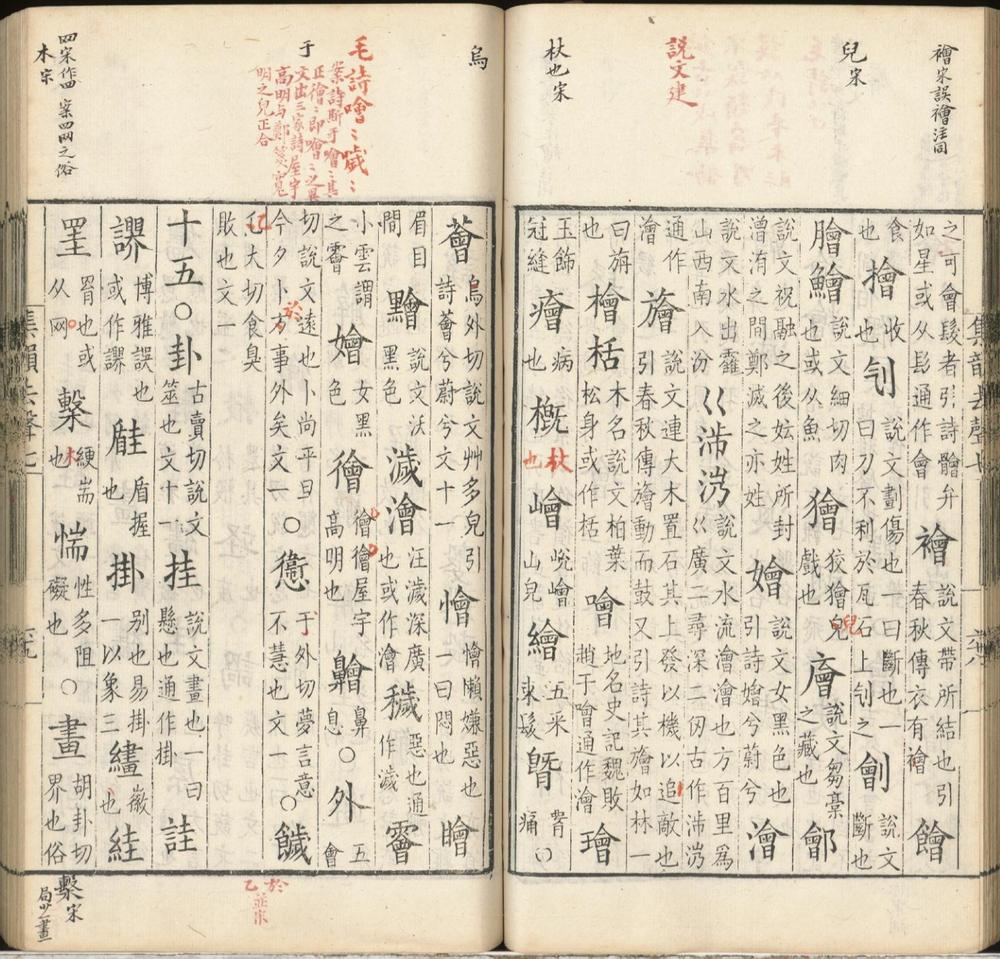 襘宋誤禬注同
兒宋
説文建
杖也宋
之可會髮者引詩髖弁如星或从髟通作會 襘 説文帶所結也引春秋傳衣有襘 䭝
食也 㩓 收也 刏 説文劃傷也一曰斷也一曰刀不利於瓦石上刏之 劊 説文斷也
膾鱠 説文細切肉也或从魚 獪 狡獪兒戲也 廥 説文芻藁之藏也 鄶
説文祝融之後妘姓所封潧洧之間鄭滅之亦姓 嬒 説文女黑色也引詩嬒兮蔚兮 澮
説文水出靃山西南入汾 巜 㳍 㴊 説文水流澮澮也方百里爲巜廣二尋深二仞古作㳍㴊
通作澮 旝 説文建大木置石其上發以機以追敵也引春秋傳旝動而鼓又引詩其旝如林一
曰旃也 檜 栝 木名説文柏葉松身或作栝 噲 地名史記魏敗趙于噲通作澮 璯
玉飾冠縫 癐 病也 概 杖也 嶒 山兒 繪 五采束髮 㬣 㬣痛 〇
烏
毛詩噲噲噦噦
案詩斯于噲噲其
正獪獪即噲噲之異
文出三家詩屋宇
高明與鄭箋寬
明之兒正合
于
四宋作四 案四网之俗
木宋
薈 烏外切説文艸多皃引詩薈兮蔚兮文十一 懀 懀懶嫌惡也一曰悶也 瞺
眉目間 黵 説文沃黑色 濊 濊 汪濊深廣也或作澮 穢 惡也通作濊 霒
小雲謂之霒 嬒 女黑色 㣛 㣛㣛屋宇高明也 䶐 鼻息 〇 外 五會
切説文遠也卜尚平旦今夕卜於事外矣文一 〇 㦣 于外切夢言意不慧也文一 〇 饖
乙大切食臭敗也文一
十五 〇 卦 古賣切説文筮也文十一 挂 説文畫也一曰懸也通作掛 詿
謬 博雅誤也或作謬 䀹 盾握也 掛 别也易掛一以象三 繣 徽也 絓
罣 罥也或从网 繫 緶耑也 懦 性多阻礙也 〇 畫 胡卦切界也俗
於
乙並宋
繫宋
局少畫